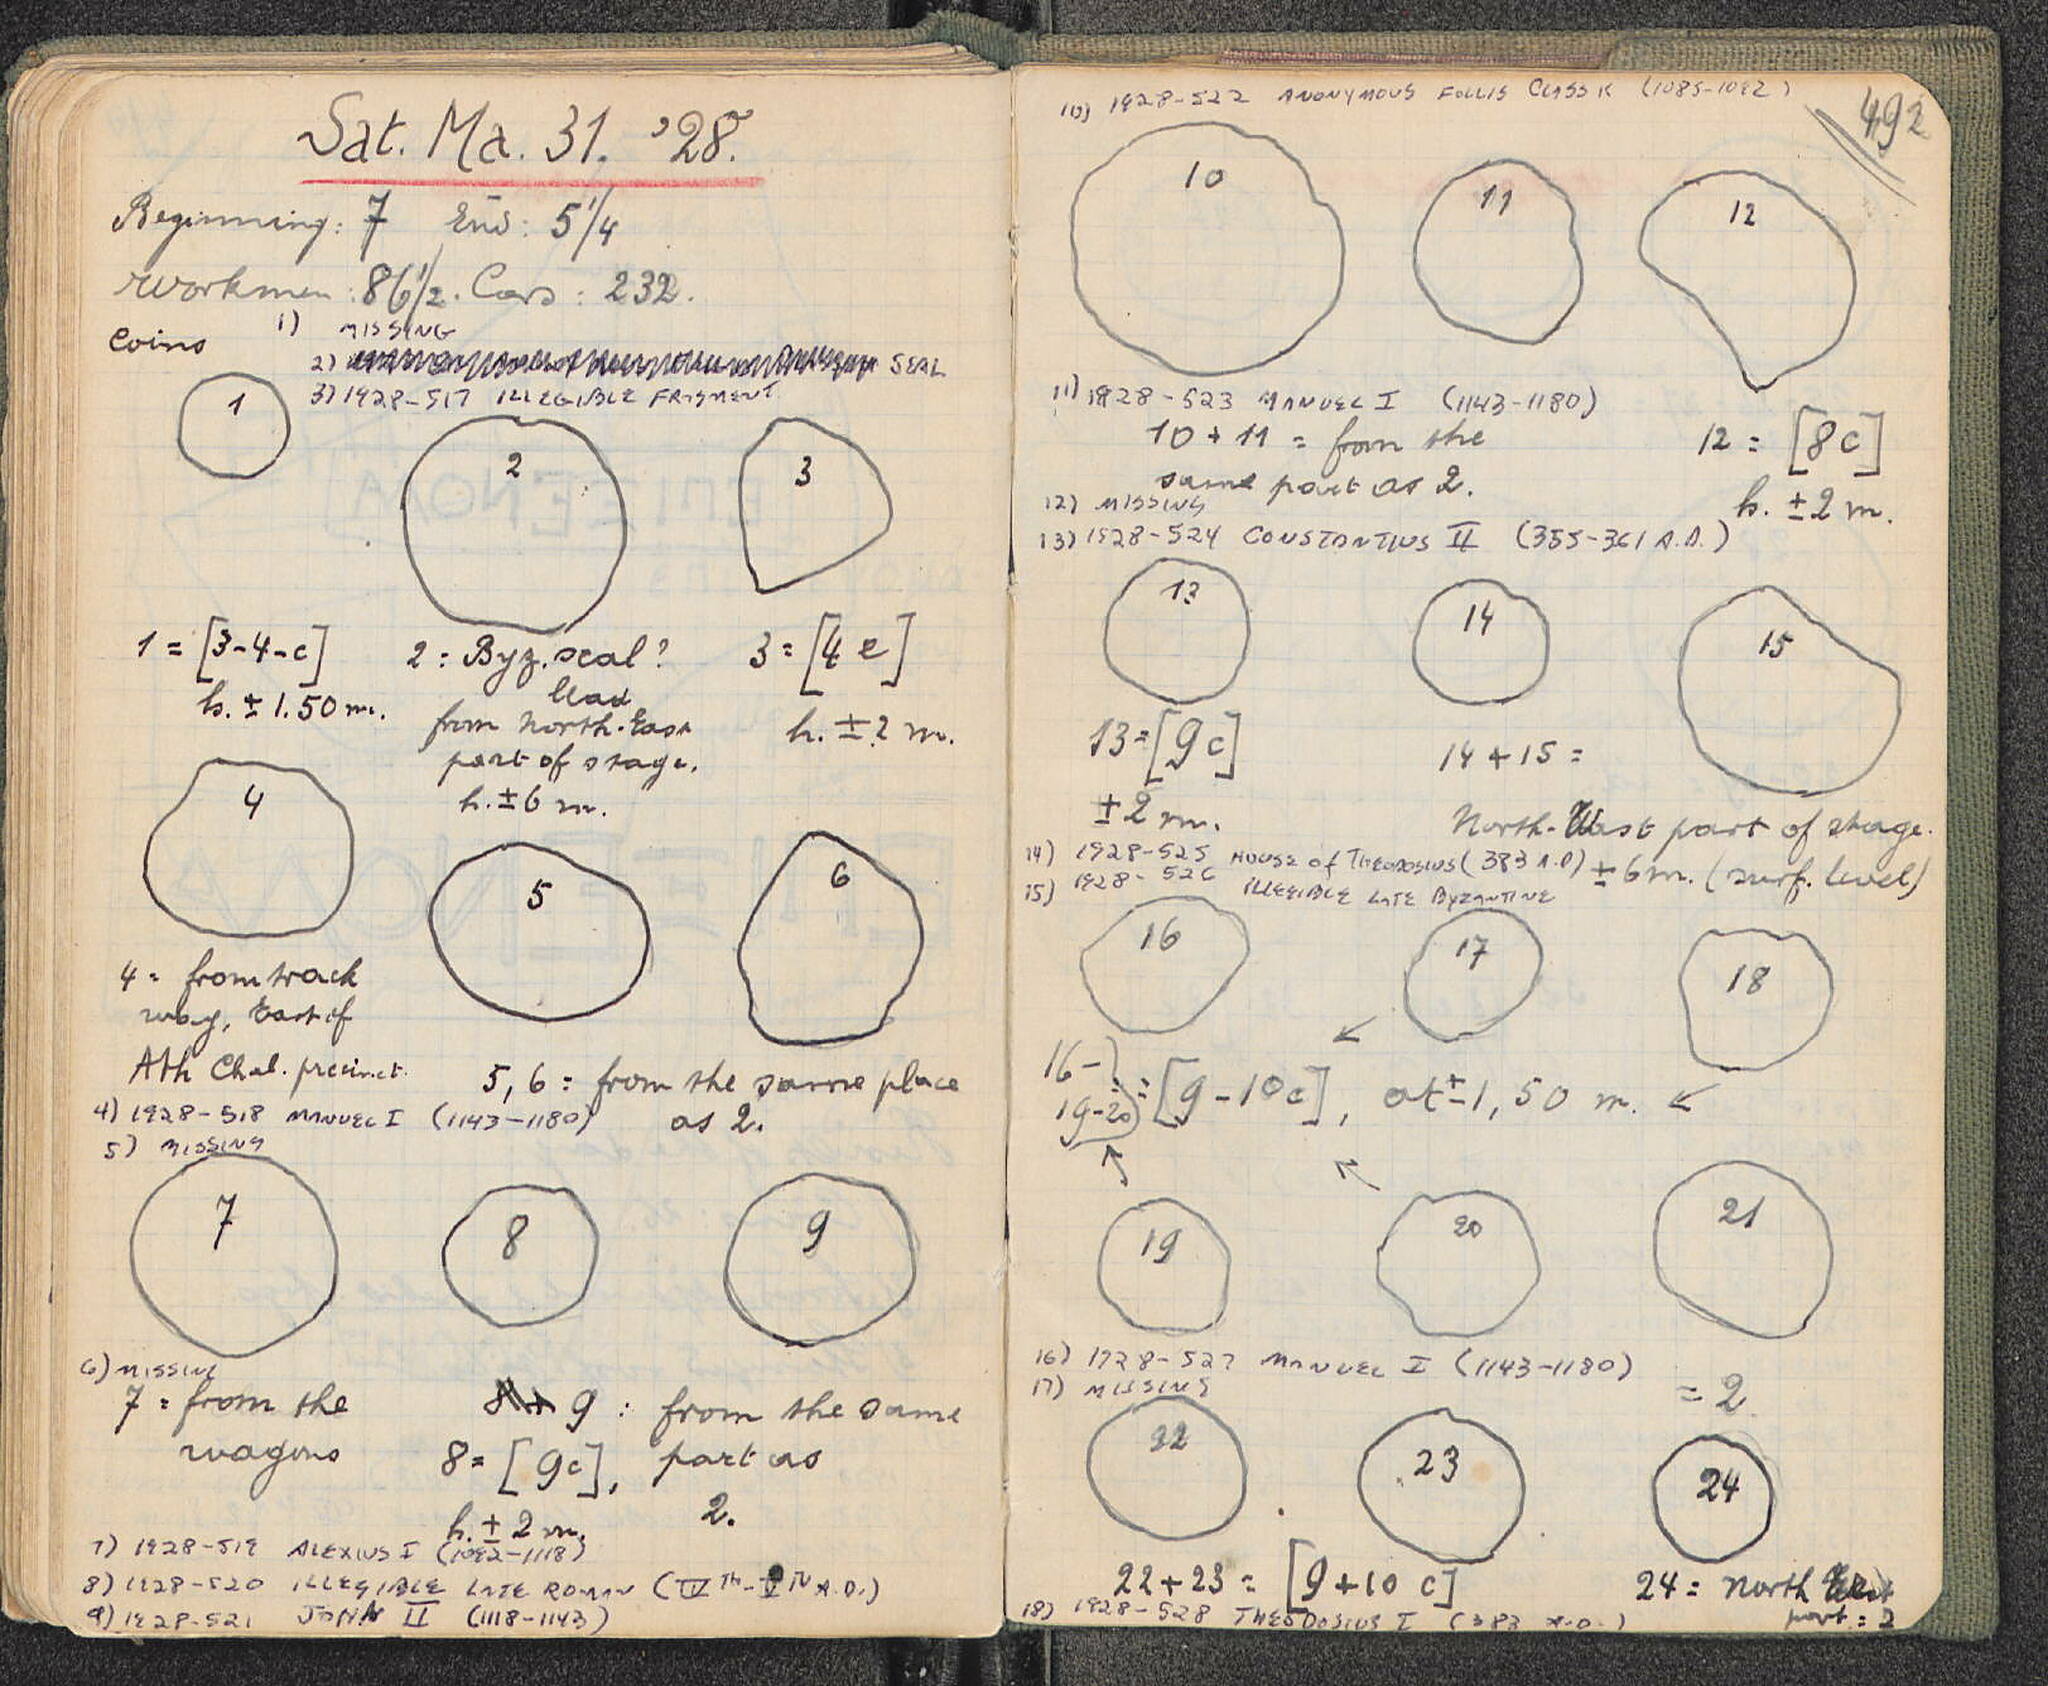 Sat. Ma. 31. '28.
Beginning: 7 End: 5 1/4
Workmen: 86 1/2. Cars: 232.
Coins
1) MISSING
2) SEAL
3) 1928-517 ILLEGIBLE FRAGMENT
1
2
3
1 = [3-4-c]
h. ± 1.50 m.
2 = Byz. seal?
lead
from North-East
part of stage.
h. ± 6 m.
3 = [4 e]
h. ± 2 m.
4
5
6
4 = from track
way, East of
Ath Chal. precinct.
5, 6 = from the same place
as 2.
4) 1928-518 MANUEL I (1143-1180)
5) MISSING
7
8
9
6) MISSING
7 = from the
wagons
9 : from the same
part as
2.
8 = [9c],
h. ± 2 m.
7) 1928-519 ALEXIUS I (1092-1118)
8) 1928-520 ILLEGIBLE LATE ROMAN (IV TH - V TH A.D.)
9) 1928-521 JOHN II (1118-1143)
492
10) 1928-522 ANONYMOUS FOLLIS CLASS K (1085-1092)
10
11
12
11) 1928-523 MANUEL I (1143-1180)
10 + 11 = from the
same part as 2.
12 = [8c]
h. ± 2 m.
12) MISSING
13) 1928-524 CONSTANTIUS II (355-361 A.D.)
13
14
15
13 = [9c]
± 2 m.
14 + 15 =
North-West part of stage.
± 6 m. (surf. level)
14) 1928-525 HOUSE OF THEODOSIUS (383 A.D)
15) 1928-526 ILLEGIBLE LATE BYZANTINE
16
17
18
16-
19-20 = [9-10c], at ± 1,50 m.
19
20
21
16) 1928-527 MANUEL I (1143-1180)
17) MISSING
= 2
22
23
24
22 + 23 = [9+10 c]
24 = North
part = 2
18) 1928-528 THEODOSIUS I (383 A.D.)